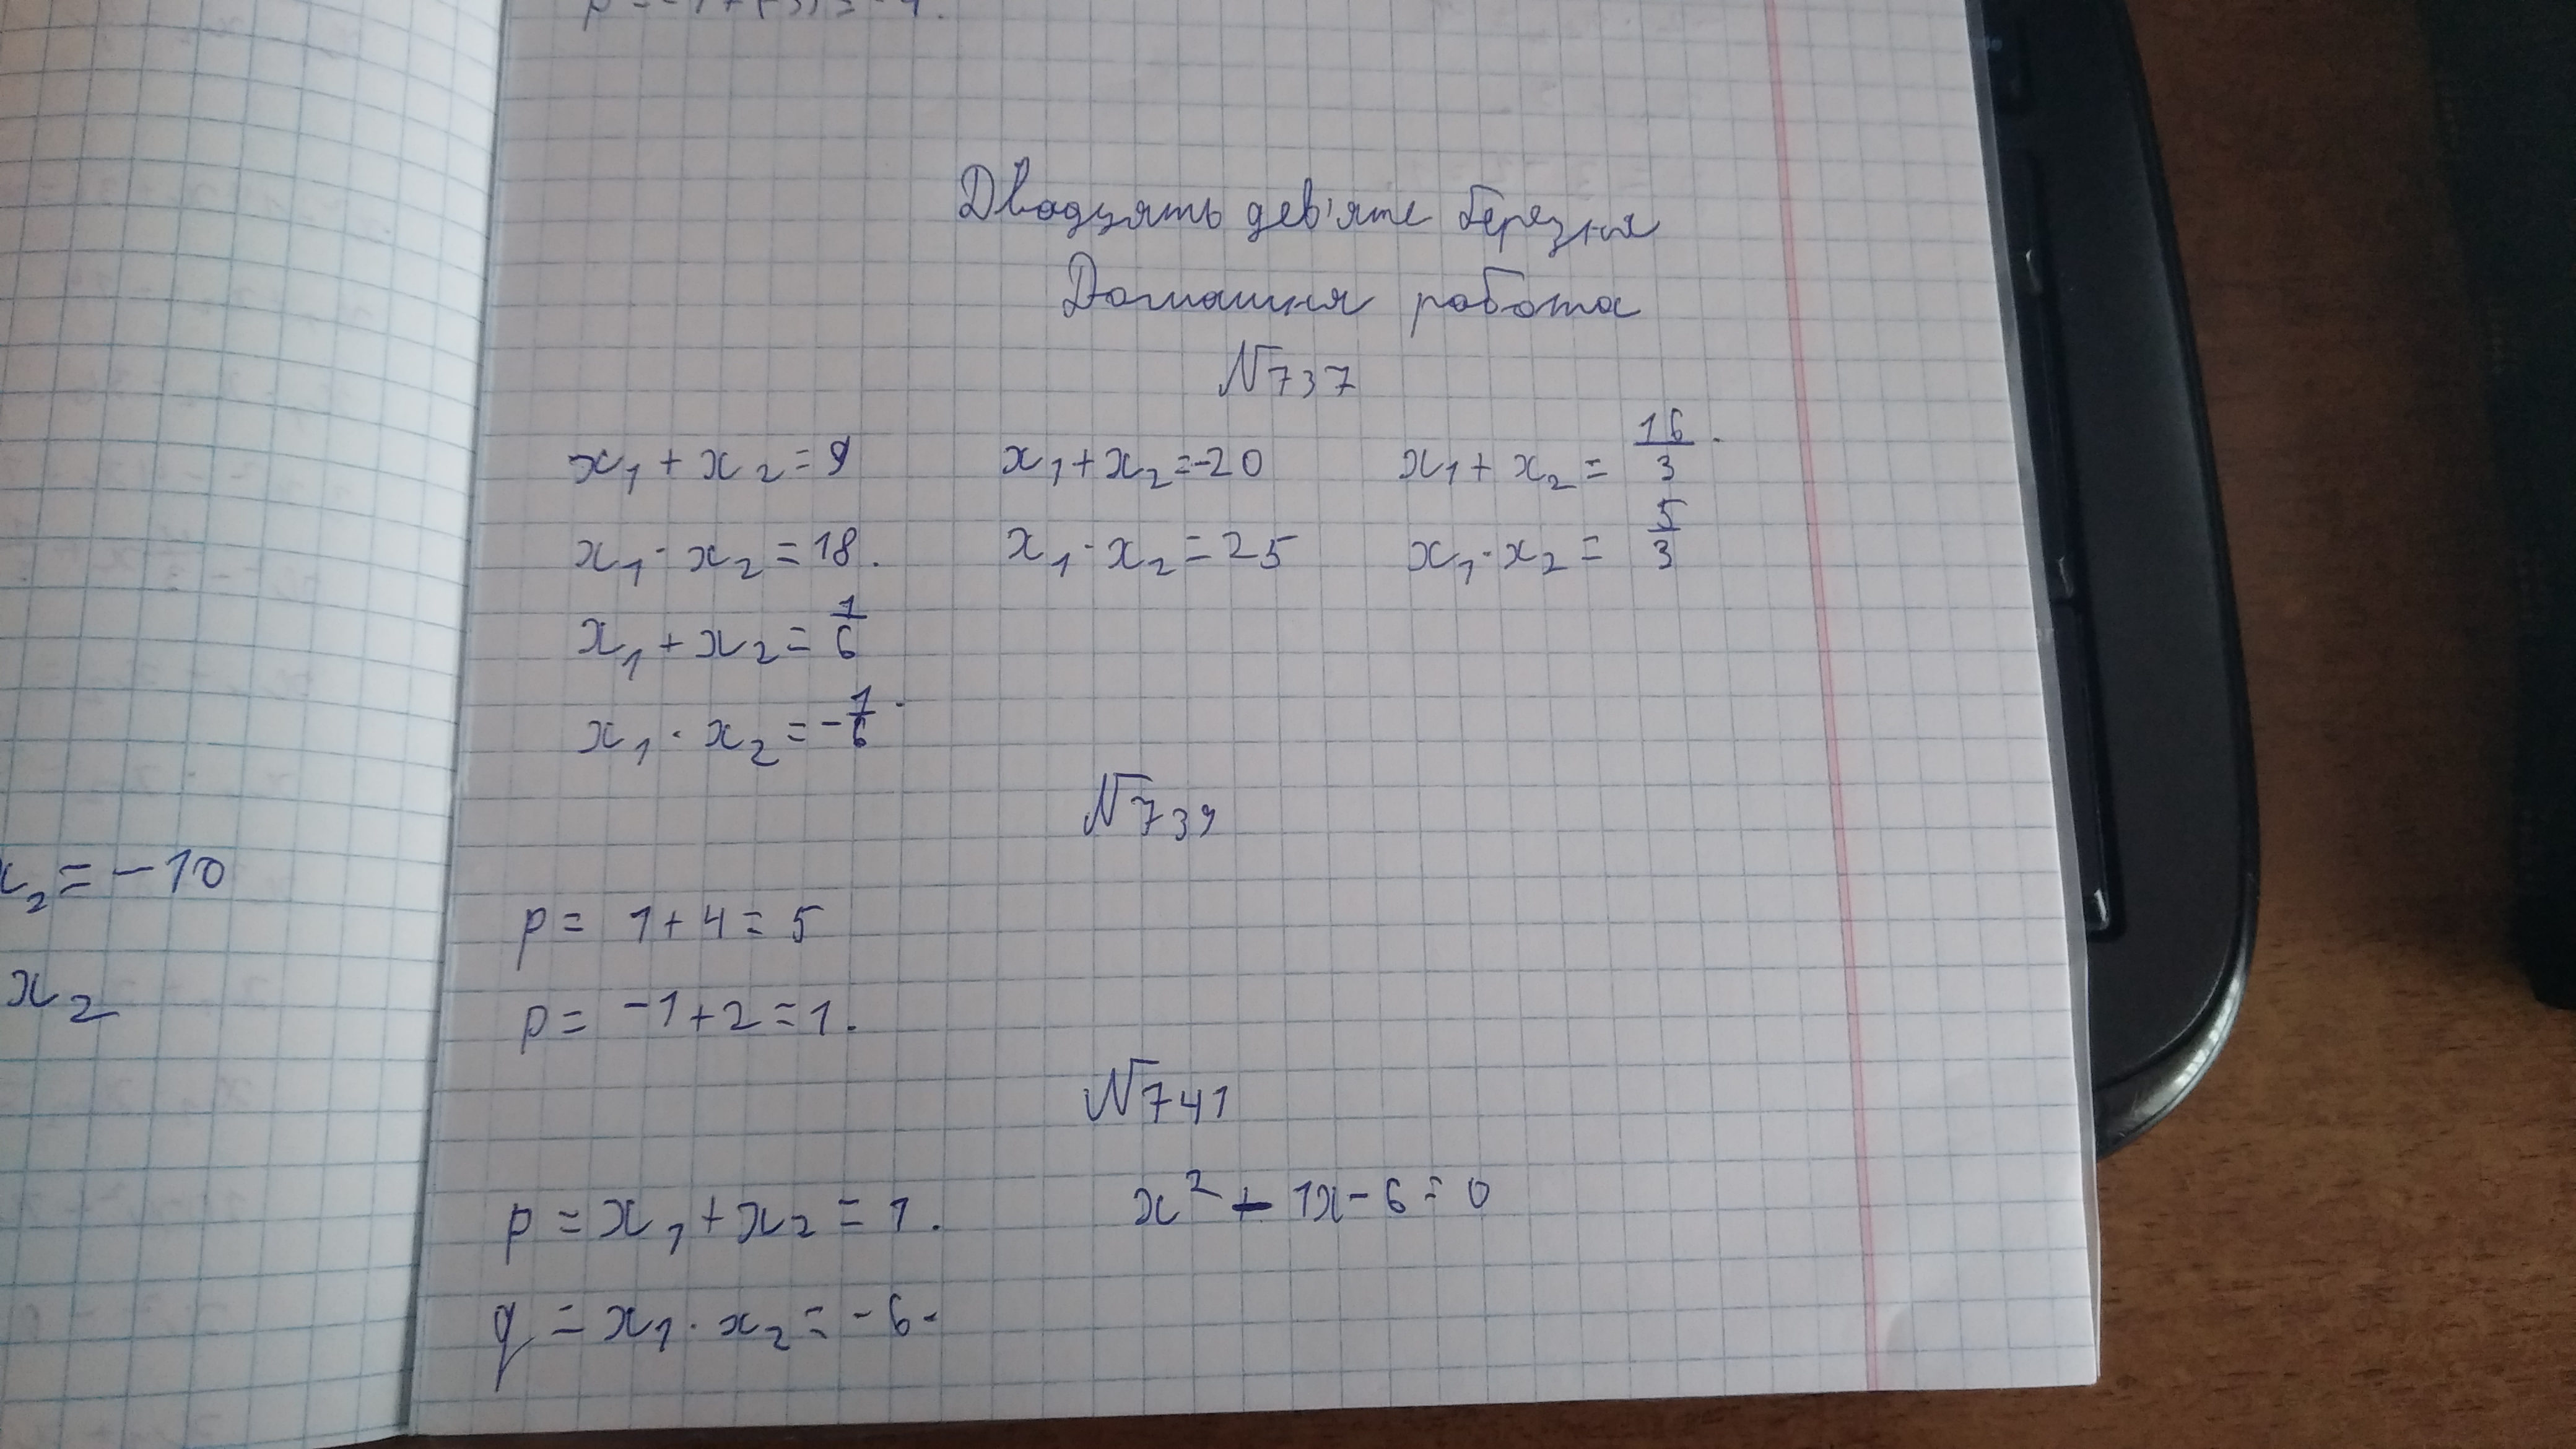 Двадцять дев'яте березня
Домашня робота
№737
x₁ + x₂ = 9
x₁ · x₂ = 18.
x₁ + x₂ = -20
x₁ · x₂ = 25
x₁ + x₂ = 16/3.
x₁ · x₂ = 5/3
x₁ + x₂ = 1/6
x₁ · x₂ = -1/6.
№739
p = 1 + 4 = 5
p = -1 + 2 = 1.
№741
p = x₁ + x₂ = 1.
q = x₁ · x₂ = -6.
x² - 1x - 6 = 0
x₂ = -10
x₂